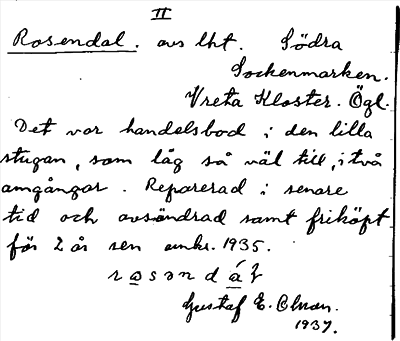 II
Rosendal. avs lht. Södra
Sockenmarken.
Vreta Kloster. Ögl.
Det var handelsbod i den lilla
stugan, som låg så väl till, i två
omgångar. Reparerad i senare
tid och avsöndrad samt friköpt
för 2 år sen omkr. 1935.
Gustaf E.
1937.